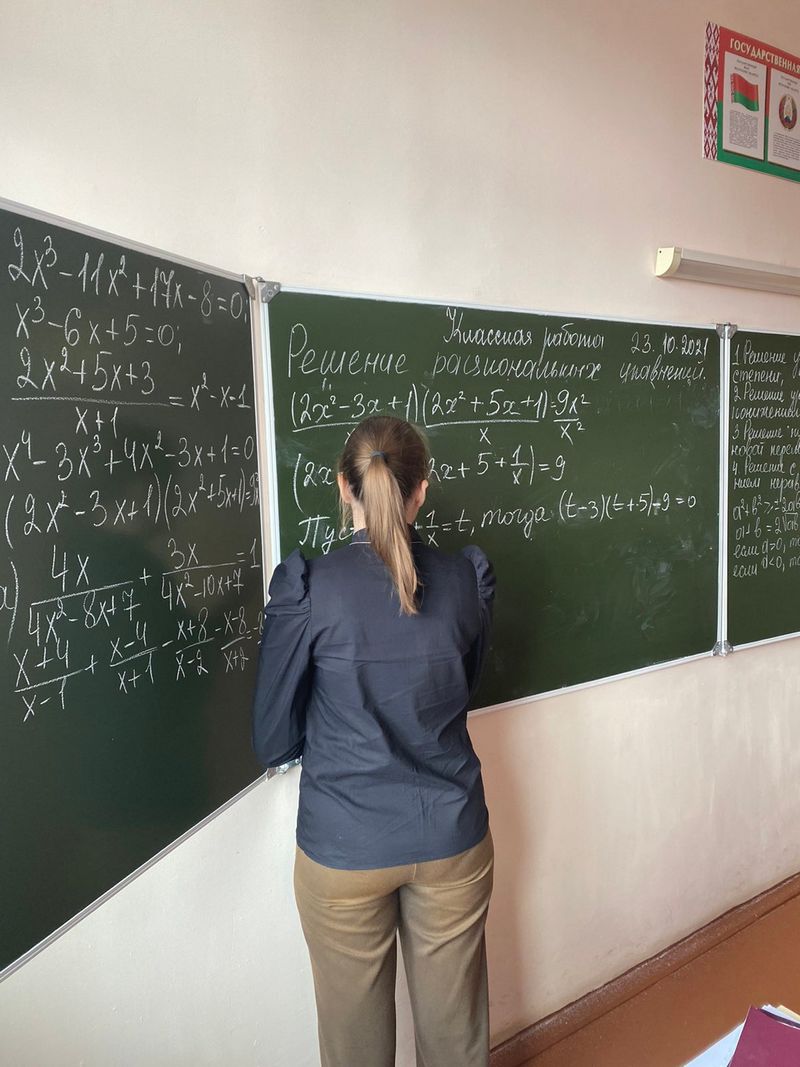 2x³ - 11x² + 17x - 8 = 0
x³ - 6x + 5 = 0;
(2x² + 5x + 3)/(x + 1) = x² - x - 1
x⁴ - 3x³ + 4x² - 3x + 1 = 0
(2x² - 3x + 1)(2x² + 5x + 1) =
а) 4x/(4x² - 8x + 7) + 3x/(4x² - 10x + 7) = 1
(x + 4)/(x - 1) + (x - 4)/(x + 1) - (x + 8)/(x - 2) - (x - 8)/(x + 2)
Классная работа 23.10.2021
Решение рациональных уравнений.
(2x² - 3x + 1)/x (2x² + 5x + 1)/x = 9x²/x²
(2x 2x + 5 + 1/x) = 9
1/x = t, тогда (t - 3)(t + 5) - 9 = 0
1 Решение
степени,
2 Решение
3 Решение
4. Решение с
a² + b² >= 2ab
a + b =
если a>0,
если a<0,
ГОСУДАРСТВЕННАЯ